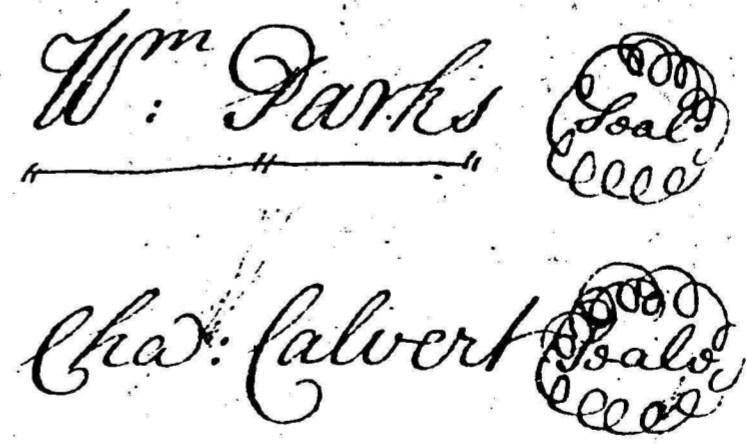 Wm: Parks Seal
Cha: Calvert Seal